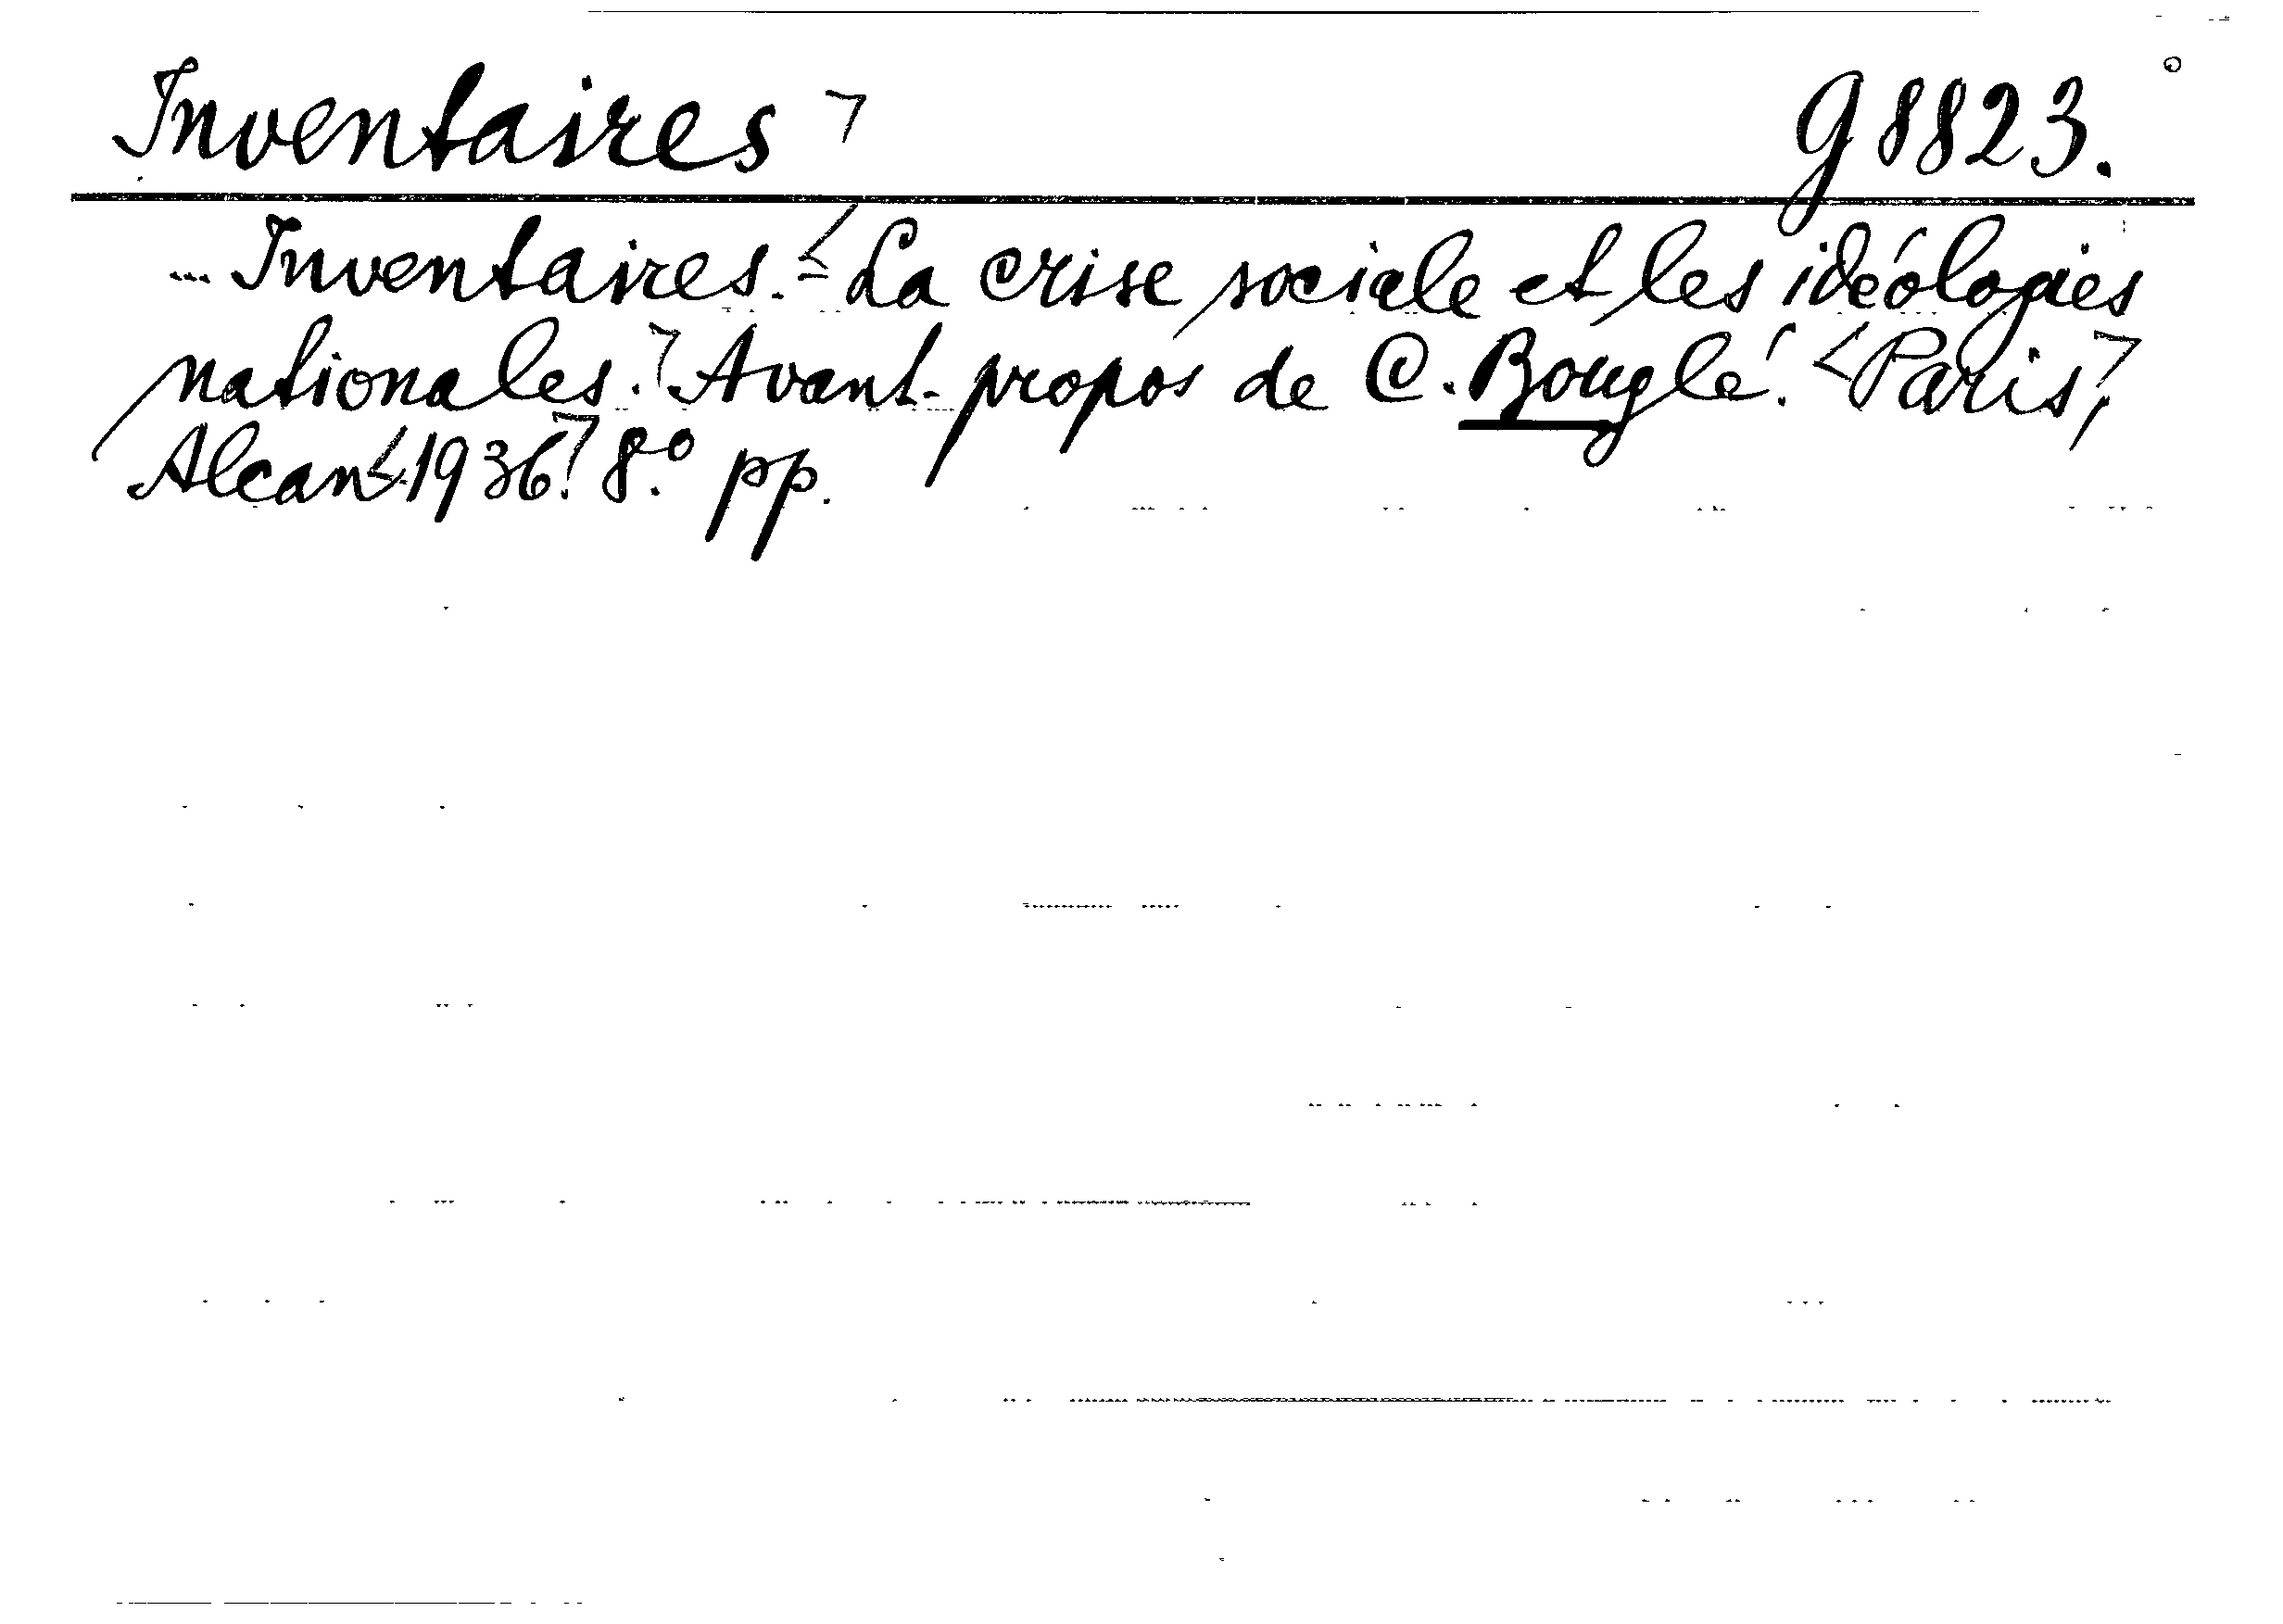 Inventaires g 8823.
Inventaires. - La crise sociale et les idéologies
nationales. Avant-propos de C. Bouglé. Paris,
Alcan 1936. 8.° pp.